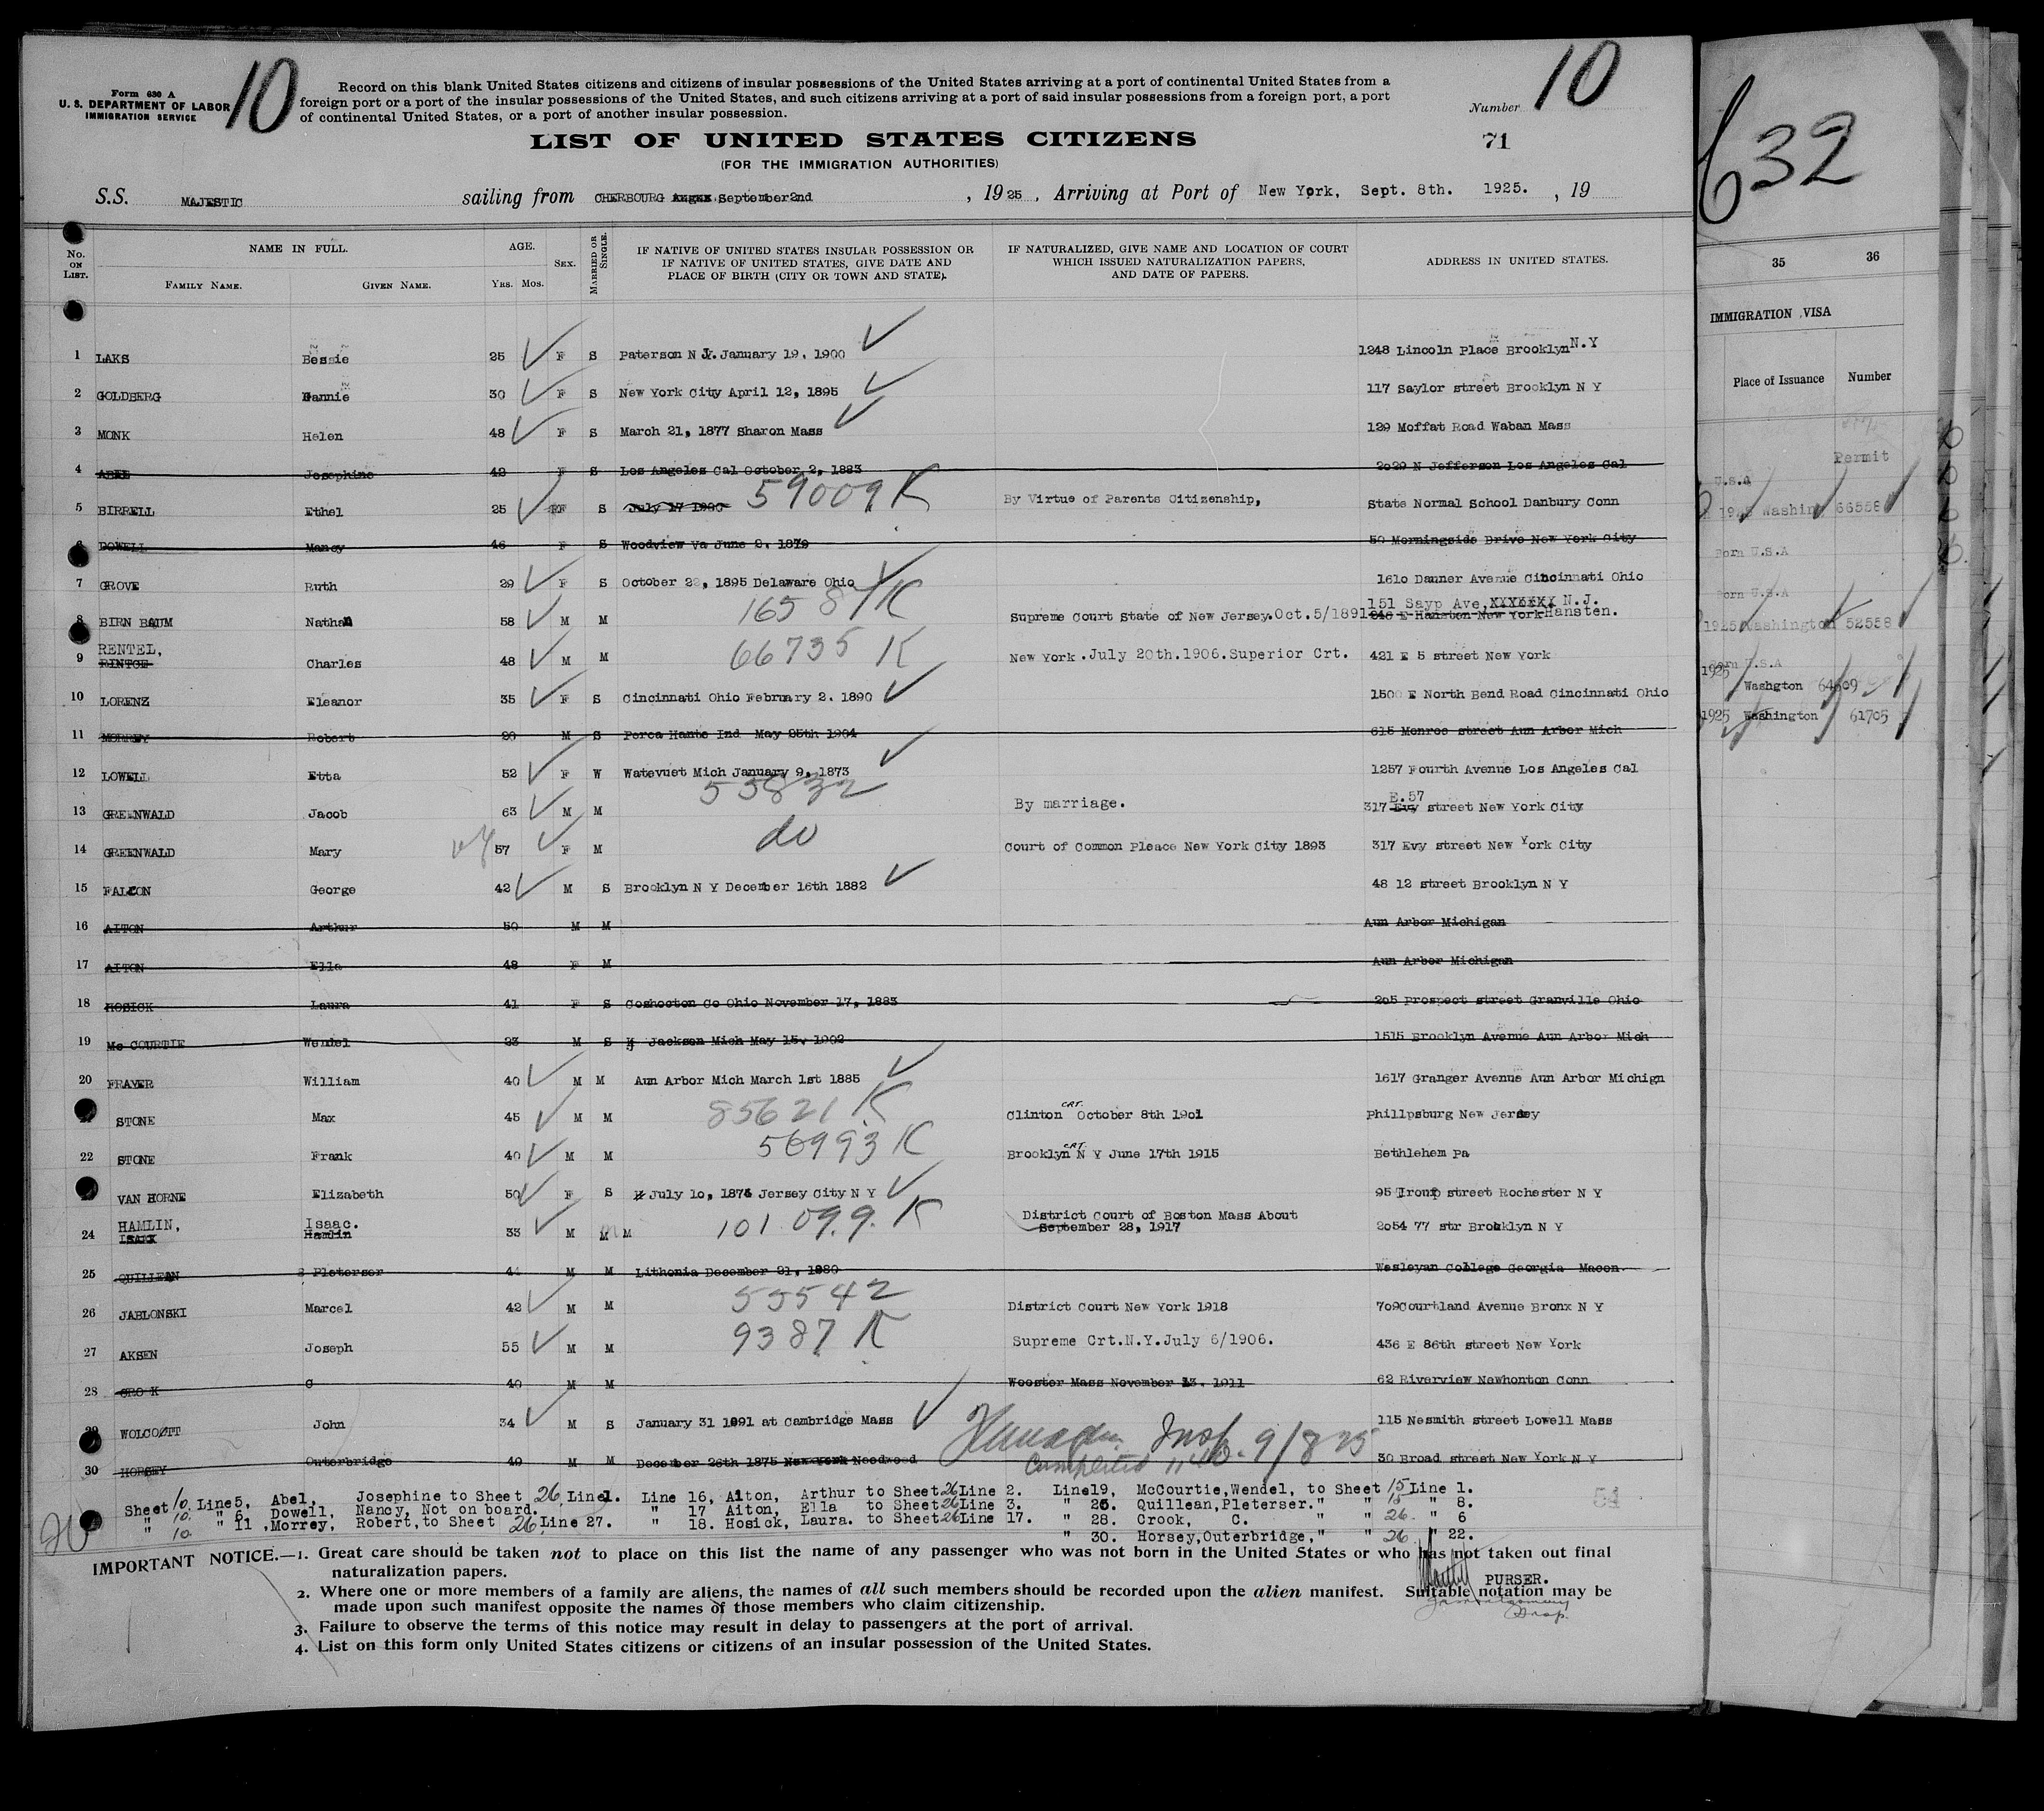 Form 630 A
U. S. DEPARTMENT OF LABOR
IMMIGRATION SERVICE
10
Record on this blank United States citizens and citizens of insular possessions of the United States arriving at a port of continental United States from a
foreign port or a port of the insular possessions of the United States, and such citizens arriving at a port of said insular possessions from a foreign port, a port
of continental United States, or a port of another insular possession.
Number 10
LIST OF UNITED STATES CITIZENS
71
(FOR THE IMMIGRATION AUTHORITIES)
S.S. MAJESTIC sailing from CHERBOURG September 2nd , 1925 , Arriving at Port of New York, Sept. 8th. 1925. , 19
No. ON LIST. NAME IN FULL. AGE. SEX. MARRIED OR SINGLE. IF NATIVE OF UNITED STATES INSULAR POSSESSION OR IF NATIVE OF UNITED STATES, GIVE DATE AND PLACE OF BIRTH (CITY OR TOWN AND STATE). IF NATURALIZED, GIVE NAME AND LOCATION OF COURT WHICH ISSUED NATURALIZATION PAPERS, AND DATE OF PAPERS. ADDRESS IN UNITED STATES.
FAMILY NAME. GIVEN NAME. YRS. MOS.
1 LAKS Bessie 25 F S Paterson N J. January 19, 1900 1248 Lincoln Place Brooklyn N.Y
2 GOLDBERG Fannie 30 F S New York City April 12, 1895 117 Saylor street Brooklyn N Y
3 MONK Helen 48 F S March 21, 1877 Sharon Mass 129 Moffat Road Waban Mass
4 ABEL Josephine 42 F S Los Angeles Cal October 2, 1883 2029 N Jefferson Los Angeles Cal
5 BIRRELL Ethel 25 F S July 17 1900 59009 K By Virtue of Parents Citizenship, State Normal School Danbury Conn
6 DOWELL Nancy 46 F S Woodview Va June 9. 1879 50 Morningside Drive New York City
7 GROVE Ruth 29 F S October 22, 1895 Delaware Ohio 1610 Dauner Avenue Cincinnati Ohio
151 Sayp Ave, N.J.
8 BIRN BAUM Nathan 58 M M 16584 K Supreme Court State of New Jersey.Oct.5/1891 248 E Hanston New York Hansten.
9 RENTEL, RINTGE Charles 48 M M 66735 K New York .July 20th.1906.Superior Crt. 421 E 5 street New York
10 LORENZ Eleanor 35 F S Cincinnati Ohio February 2. 1890 1500 E North Bend Road Cincinnati Ohio
11 MORREY Robert 20 M S Perca Hante Ind May 25th 1904 615 Monroe street Aun Arbor Mich
12 LOWELL Etta 52 F W Watevuet Mich January 9, 1873 1257 Fourth Avenue Los Angeles Cal
13 GREENWALD Jacob 63 M M 55832 By marriage. 317 Evy E.57 street New York City
14 GREENWALD Mary 57 F M do Court of Common Pleace New York City 1893 317 Evy street New York City
15 FALCON George 42 M S Brooklyn N Y December 16th 1882 48 12 street Brooklyn N Y
16 AITON Arthur 50 M M Aun Arbor Michigan
17 AITON Ella 48 F M Aun Arbor Michigan
18 HOSICK Laura 41 F S Coshocton Co Ohio November 17, 1883 205 Prospect street Granville Ohio
19 Mc COURTIE Wendel 23 M S Jackson Mich May 15, 1902 1515 Brooklyn Avenue Aun Arbor Mich
20 FRAYER William 40 M M Aun Arbor Mich March 1st 1885 1617 Granger Avenue Aun Arbor Michign
STONE Max 45 M M 85621 K Clinton CRT. October 8th 1901 Phillpsburg New Jersey
22 STONE Frank 40 M M 56993 K Brooklyn CRT. N Y June 17th 1915 Bethlehem Pa
VAN HORNE Elizabeth 50 F S July 10, 1874 Jersey City N Y 95 Troup street Rochester N Y
24 HAMLIN, ISAAX Isaac. Hamlin 33 M M M 101099 K District Court of Boston Mass About September 28, 1917 2054 77 str Brooklyn N Y
25 QUILLEAN S Pleterser 44 M M Lithonia December 21, 1880 Wesleyan College Georgia Macon
26 JABLONSKI Marcel 42 M M 55542 District Court New York 1918 709 Courtland Avenue Bronx N Y
27 AKSEN Joseph 55 M M 9387 K Supreme Crt.N.Y.July 6/1906. 436 E 86th street New York
28 CRO K C 40 M M Wooster Mass November 13. 1911 62 Riverview Newhonton Conn
29 WOLCOTT John 34 M S January 31 1891 at Cambridge Mass 115 Nesmith street Lowell Mass
30 HORSEY Outerbridge 49 M M December 26th 1875 New York Needwood 30 Broad street New York N Y
Insp. 9/8 25
Completed
Sheet 10. Line 5, Abel, Josephine to Sheet 26, Line 1. Line 16, Aiton, Arthur to Sheet 26 Line 2. Line 19, McCourtie, Wendel, to Sheet 15 Line 1.
" 10. " 6, Dowell, Nancy, Not on board. " 17 Aiton, Ella to Sheet 26 Line 3. " 25. Quillean, Pleterser. " " 15 " 8.
" 10. " 11 ,Morrey, Robert, to Sheet 26, Line 27. " 18. Hosick, Laura. to Sheet 26 Line 17. " 28. Crook, C. " " 26. " 6
" 30. Horsey, Outerbridge, " " 26 " 22.
51
PURSER.
IMPORTANT NOTICE.—1. Great care should be taken not to place on this list the name of any passenger who was not born in the United States or who has not taken out final
naturalization papers.
2. Where one or more members of a family are aliens, the names of all such members should be recorded upon the alien manifest. Suitable notation may be
made upon such manifest opposite the names of those members who claim citizenship.
3. Failure to observe the terms of this notice may result in delay to passengers at the port of arrival.
4. List on this form only United States citizens or citizens of an insular possession of the United States.
632
35 36
IMMIGRATION VISA
Place of Issuance Number
Permit
U.S.A
1925 Washin 66558
Born U.S.A
Born U.S.A
1925 Washington 52558
Born U.S.A
1925
Washgton 64609
1925 Washington 61705